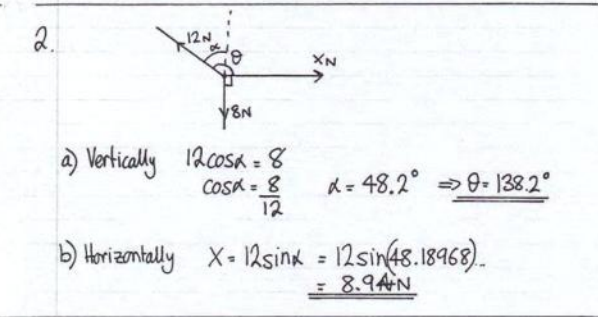 2.
12N
α
θ
XN
8N
a) Vertically 12cosα = 8
cosα = 8/12 α = 48.2° ⇒ θ = 138.2°
b) Horizontally X = 12sinα = 12sin(48.18968)..
= 8.94N